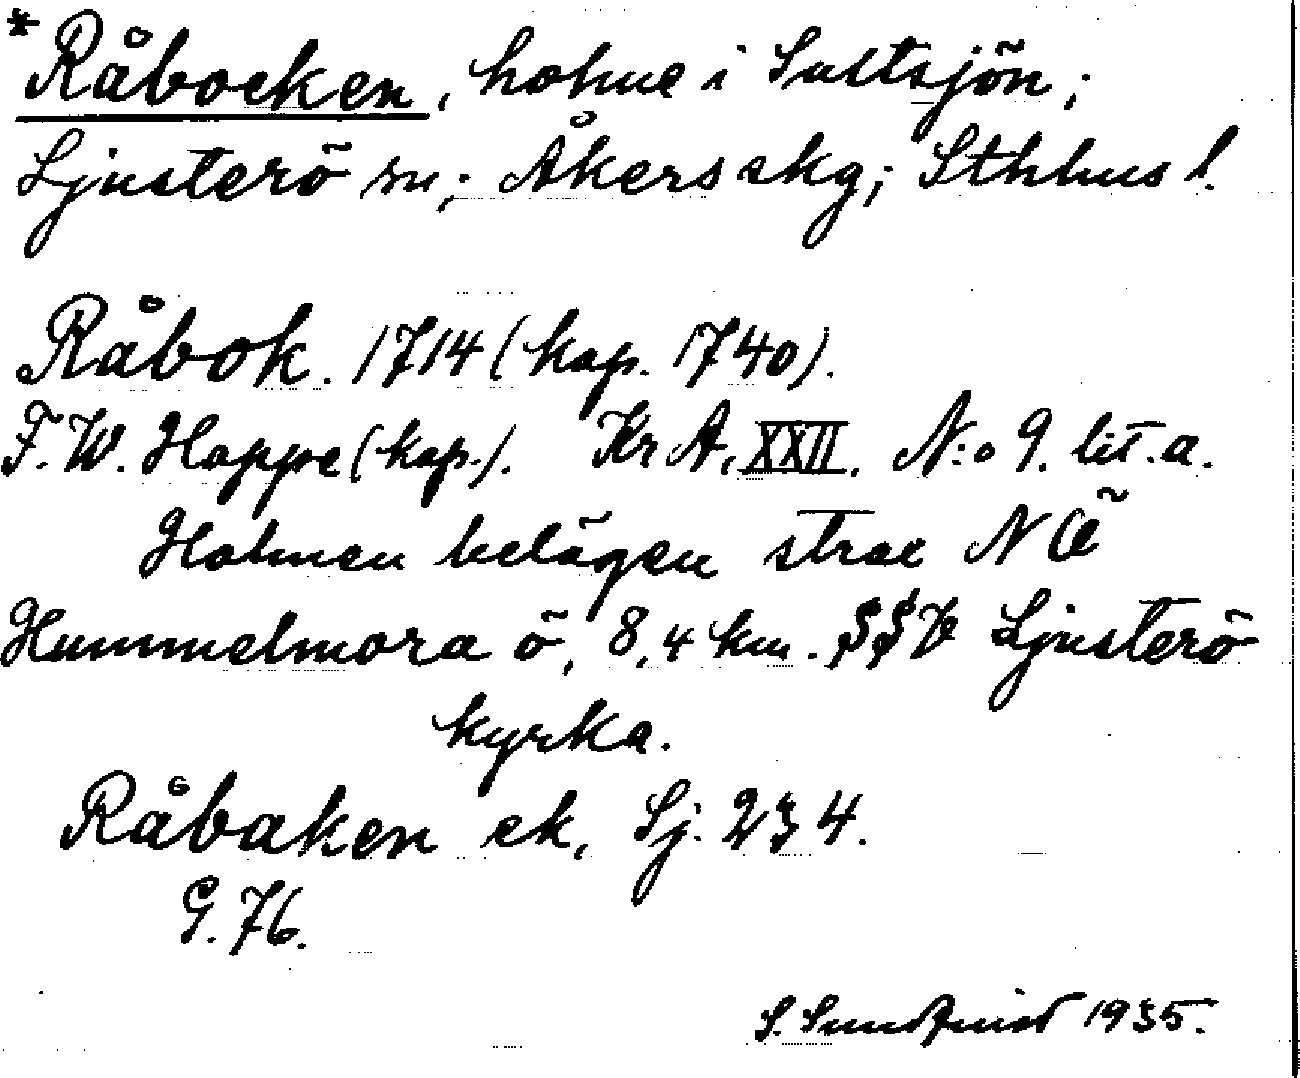 *Råbocken, holme i Saltsjön;
Ljusterö sn; Åkers skg; Sthlms l.
Råbok. 1714 (kop. 1740).
F. W. Hoppe (kop.). Kr A, XXII. N:o 9. lit. a.
Holmen belägen strax NÖ
Hummelmora ö, 8,4 km. SSV Ljusterö
kyrka.
Råbaken ek, Sj. 234.
G. 76.
S. Sundquist 1935.